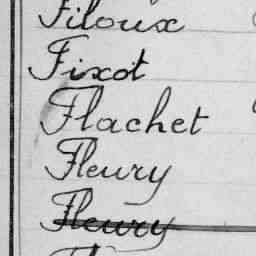 Filoux
Fixot
Flachet
Fleury
Fleury